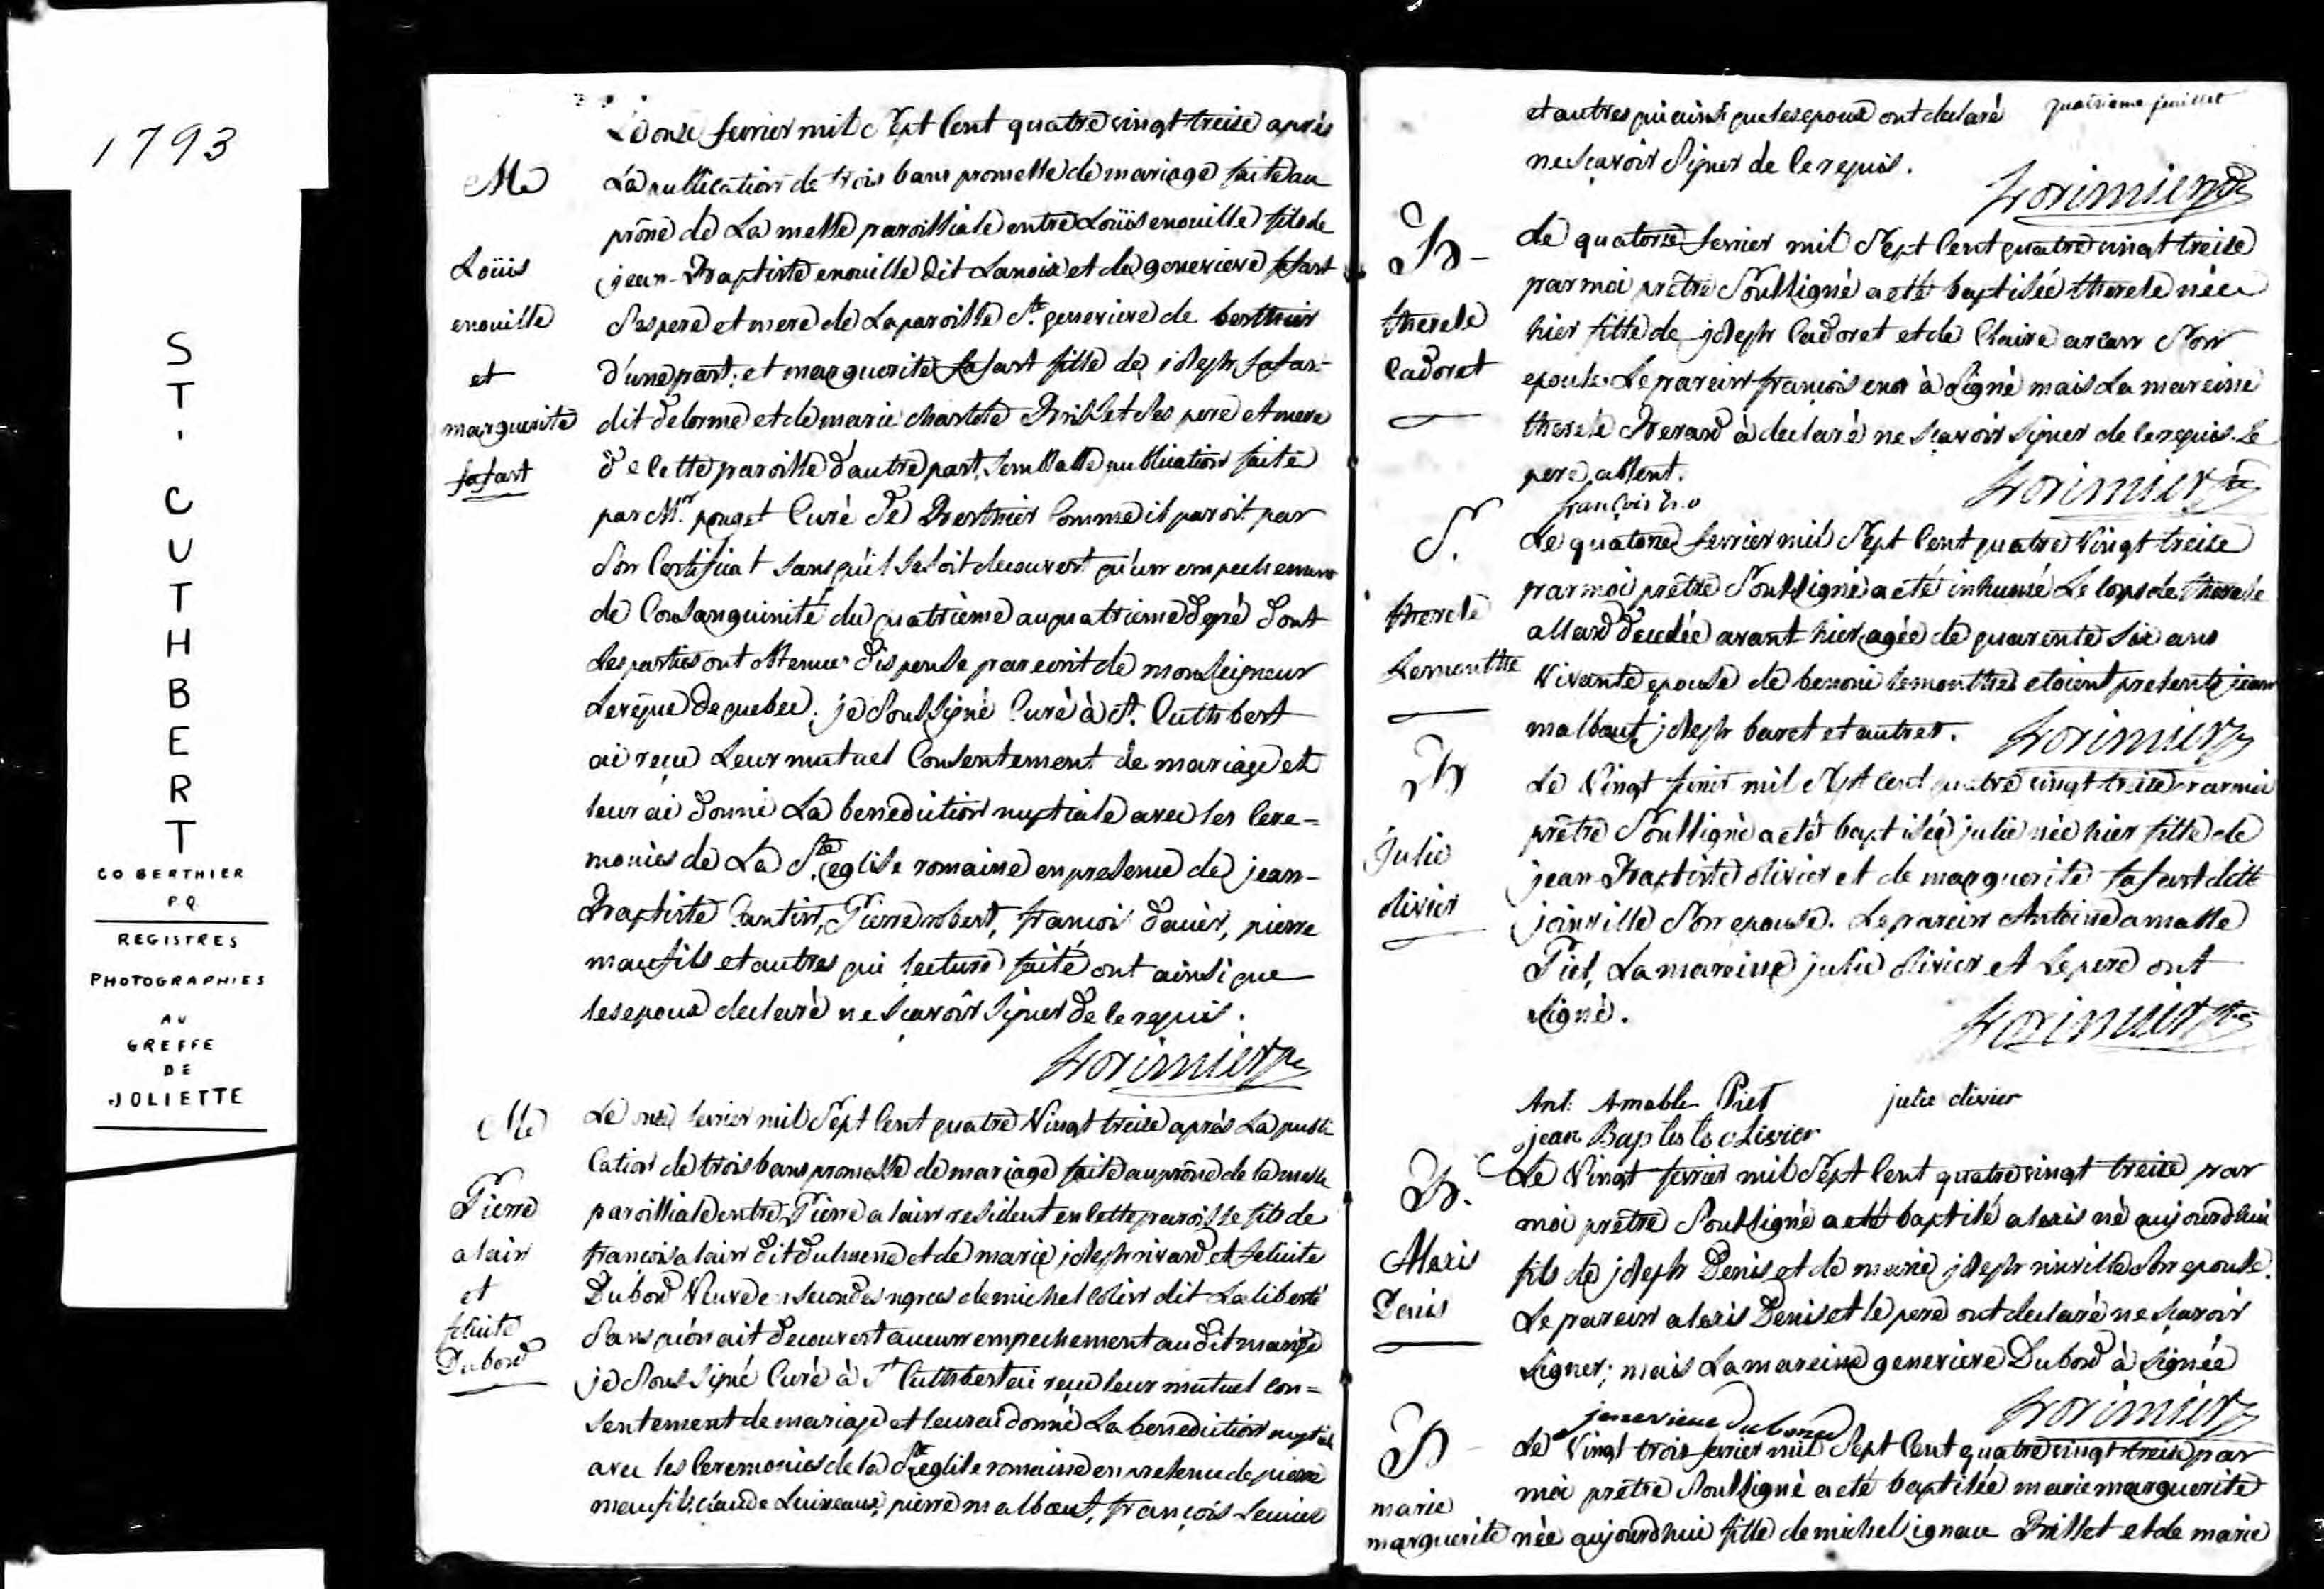 1793
ST. CUTHBERT
CO BERTHIER
P.Q.
REGISTRES
PHOTOGRAPHIES
AU
GREFFE
DE
JOLIETTE
Le onze fevrier mil Sept Cent quatre vingt treise après
La publication de trois bans promesse de mariage faite au
prône de La messe paroissiale entre Loüis enouille fils de
jean-Baptiste enouille dit Lanoix et de genevieve fafart
Ses pere et mere de La paroisse Ste genevieve de berthier
d'une part; et marguerite fafart fille de joseph fafart
dit delorme et de marie charlote Brisset Ses pere et mere
de Cette paroisse d'autre part, Semblable publication faite
par Mr. pouget Curé de Berthier Comme il paroit par
Son Certificat Sans qu'il Se Soit decouvert qu'un empechement
de Consanguinité du quatrième au quatrieme degré dont
Les parties ont obtenue dispense par ecrit de monseigneur
L'evêque de quebec; je Soussigné Curé à St. Cuthbert
ai reçu Leur mutuel Consentement de mariage et
leur ai donné La benediction nuptiale avec les Cere=
monies de La Ste eglise romaine en presence de jean-
Baptiste Cantin, Pierre robert, francois pierre
et autres qui lecture faite ont ainsi que
les epoux declaré ne Sçavoir Signer de ce requis.
Lorimier ptre
M
Loüis
enouille
et
marguerite
fafart
Le onze fevrier mil Sept Cent quatre Vingt treise après La publi
Cation de trois bans promesse de mariage faite au prône de la messe
paroissiale entre Pierre alain resident en Cette paroisse fils de
françois alain dit et de marie joseph rivard et felicite
Dubord Veuve en Secondes nopces de michel Colin dit Laliberté
Sans qu'on ait decouvert aucun empechement au dit mariage
je Soussigné Curé à St Cuthbert ai reçu leur mutuel Con=
sentement de mariage et leur ai donné La benediction nuptiale
avec les Ceremonies de la Ste eglise romaine en presence de pierre
claude pierre malbœuf, françois
M
Pierre
alain
et
felicite
Dubord
et autres qui ainsi que les epoux ont declaré
quatrieme feuillet
ne Sçavoir Signer de ce requis.
Lorimier ptre
B-
therese
Cadoret
Le quatorze fevrier mil Sept Cent quatre vingt treise
par moi prêtre Soussigné a eté baptisée therese née
hier fille de joseph Cadoret et de Claire Son
epouse. Le parein françois à Signé mais La mareine
therese à declaré ne Sçavoir Signer de ce requis. Le
pere absent.
Lorimier ptre
françois
S.
therese
Lemonthe
Le quatorze fevrier mil Sept Cent quatre Vingt treise
par moi prêtre Soussigné a eté inhumé Le Corps de therese
allard decedée avant hier agée de quarente Six ans
Vivante epouse de benoni etoient presents jean
malbœuf, joseph baret et autres.
Lorimier ptre
B
julie
olivier
Le Vingt fevrier mil Sept Cent quatre vingt treise par moi
prêtre Soussigné a eté baptisée julie née hier fille de
jean-Baptiste olivier et de marguerite fafart dite
joinville Son epouse. Le parein Antoine amable
Piet, La mareine julie olivier et le pere ont
signé.
Lorimier ptre
Ant: Amable Piet
julie olivier
jean Baptiste olivier
B.
Alexis
Denis
Le Vingt fevrier mil Sept Cent quatre vingt treise par
moi prêtre Soussigné a eté baptisé alexis né aujourdhui
fils de joseph Denis et de marie joseph Son epouse.
Le parein alexis Denis et le pere ont declaré ne Savoir
signer; mais La mareine genevieve Dubord à Signée
Lorimier ptre
jenevieve Dubord
B-
marie
marguerite
Le Vingt trois fevrier mil Sept Cent quatre vingt treise par
moi prêtre Soussigné a eté baptisée marie marguerite
née aujourdhui fille de michel ignace Brisset et de marie